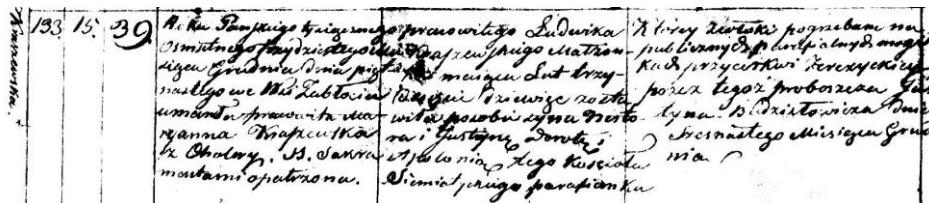 Knszewska.
193 15. 39.
Roku Pańskiego tysiącznego
Osmsetnego
siąca Grudnia dnia pięt
nastego we Wsi Zabłociu
umarła pracowita Ma-
ryanna Krajewska
z Cholery. SS. Sakra
mentami opatrzona.
pracowitego Ludwika
Matżon-
miesiąca Lat trzy-
dzieści dziewięć zosta
wiła po sobie syna
i Justynę Dorotę i
Apolonią tego Kościoła
Siemiatyckiego parafianka
Której zwłoki pogrzebane na
publicznych parafialnych mogił
kach przy cerkwi
przez tegoż proboszcza Jus
tyna Budziłowicza Dnia
szesnastego Miesiąca Grud
nia.